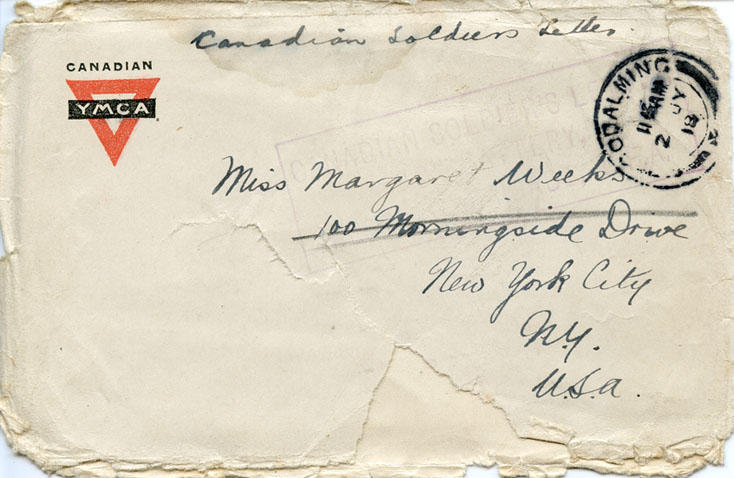 Canadian Soldiers Letter.
CANADIAN
YMCA
GODALMING
11 15 AM
2 JY
18
CANADIAN SOLDIER'S L
Miss Margaret Weeks
100 Morningside Drive
New York City
N.Y.
U.S.A.